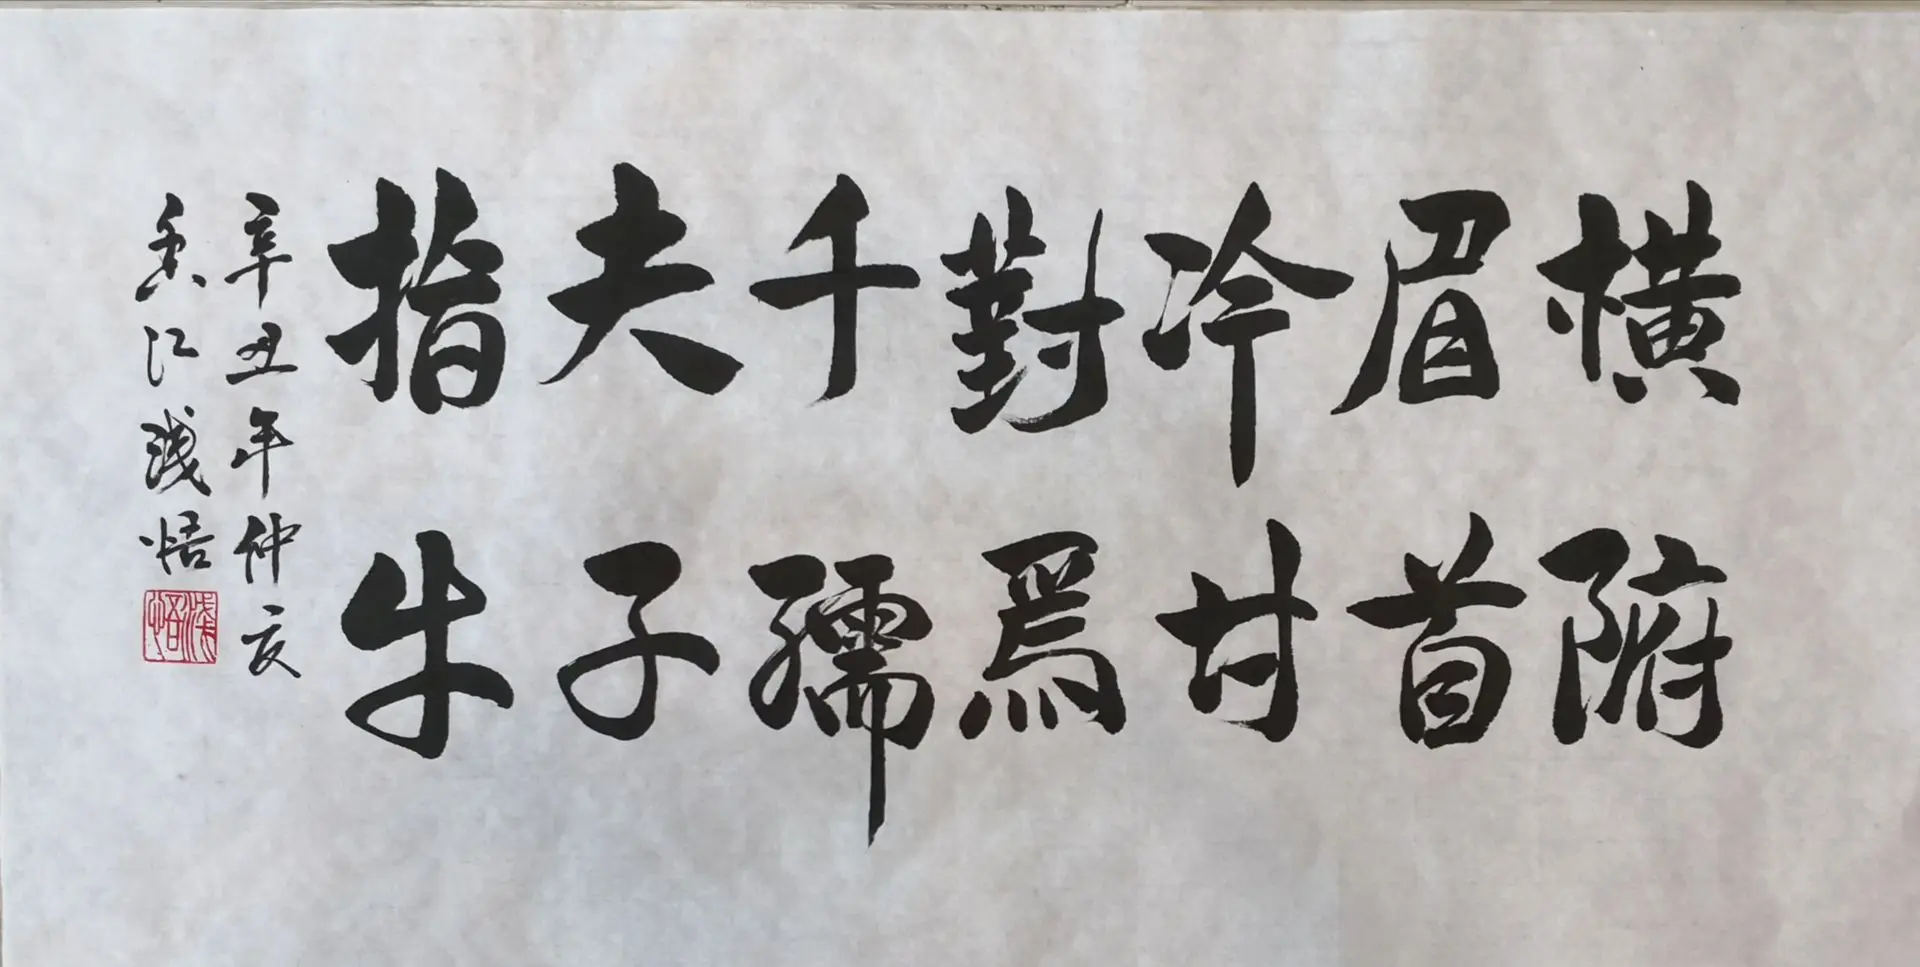 橫眉冷對千夫指
俯首甘為孺子牛
辛丑年仲亥
香江淺悟
淺悟